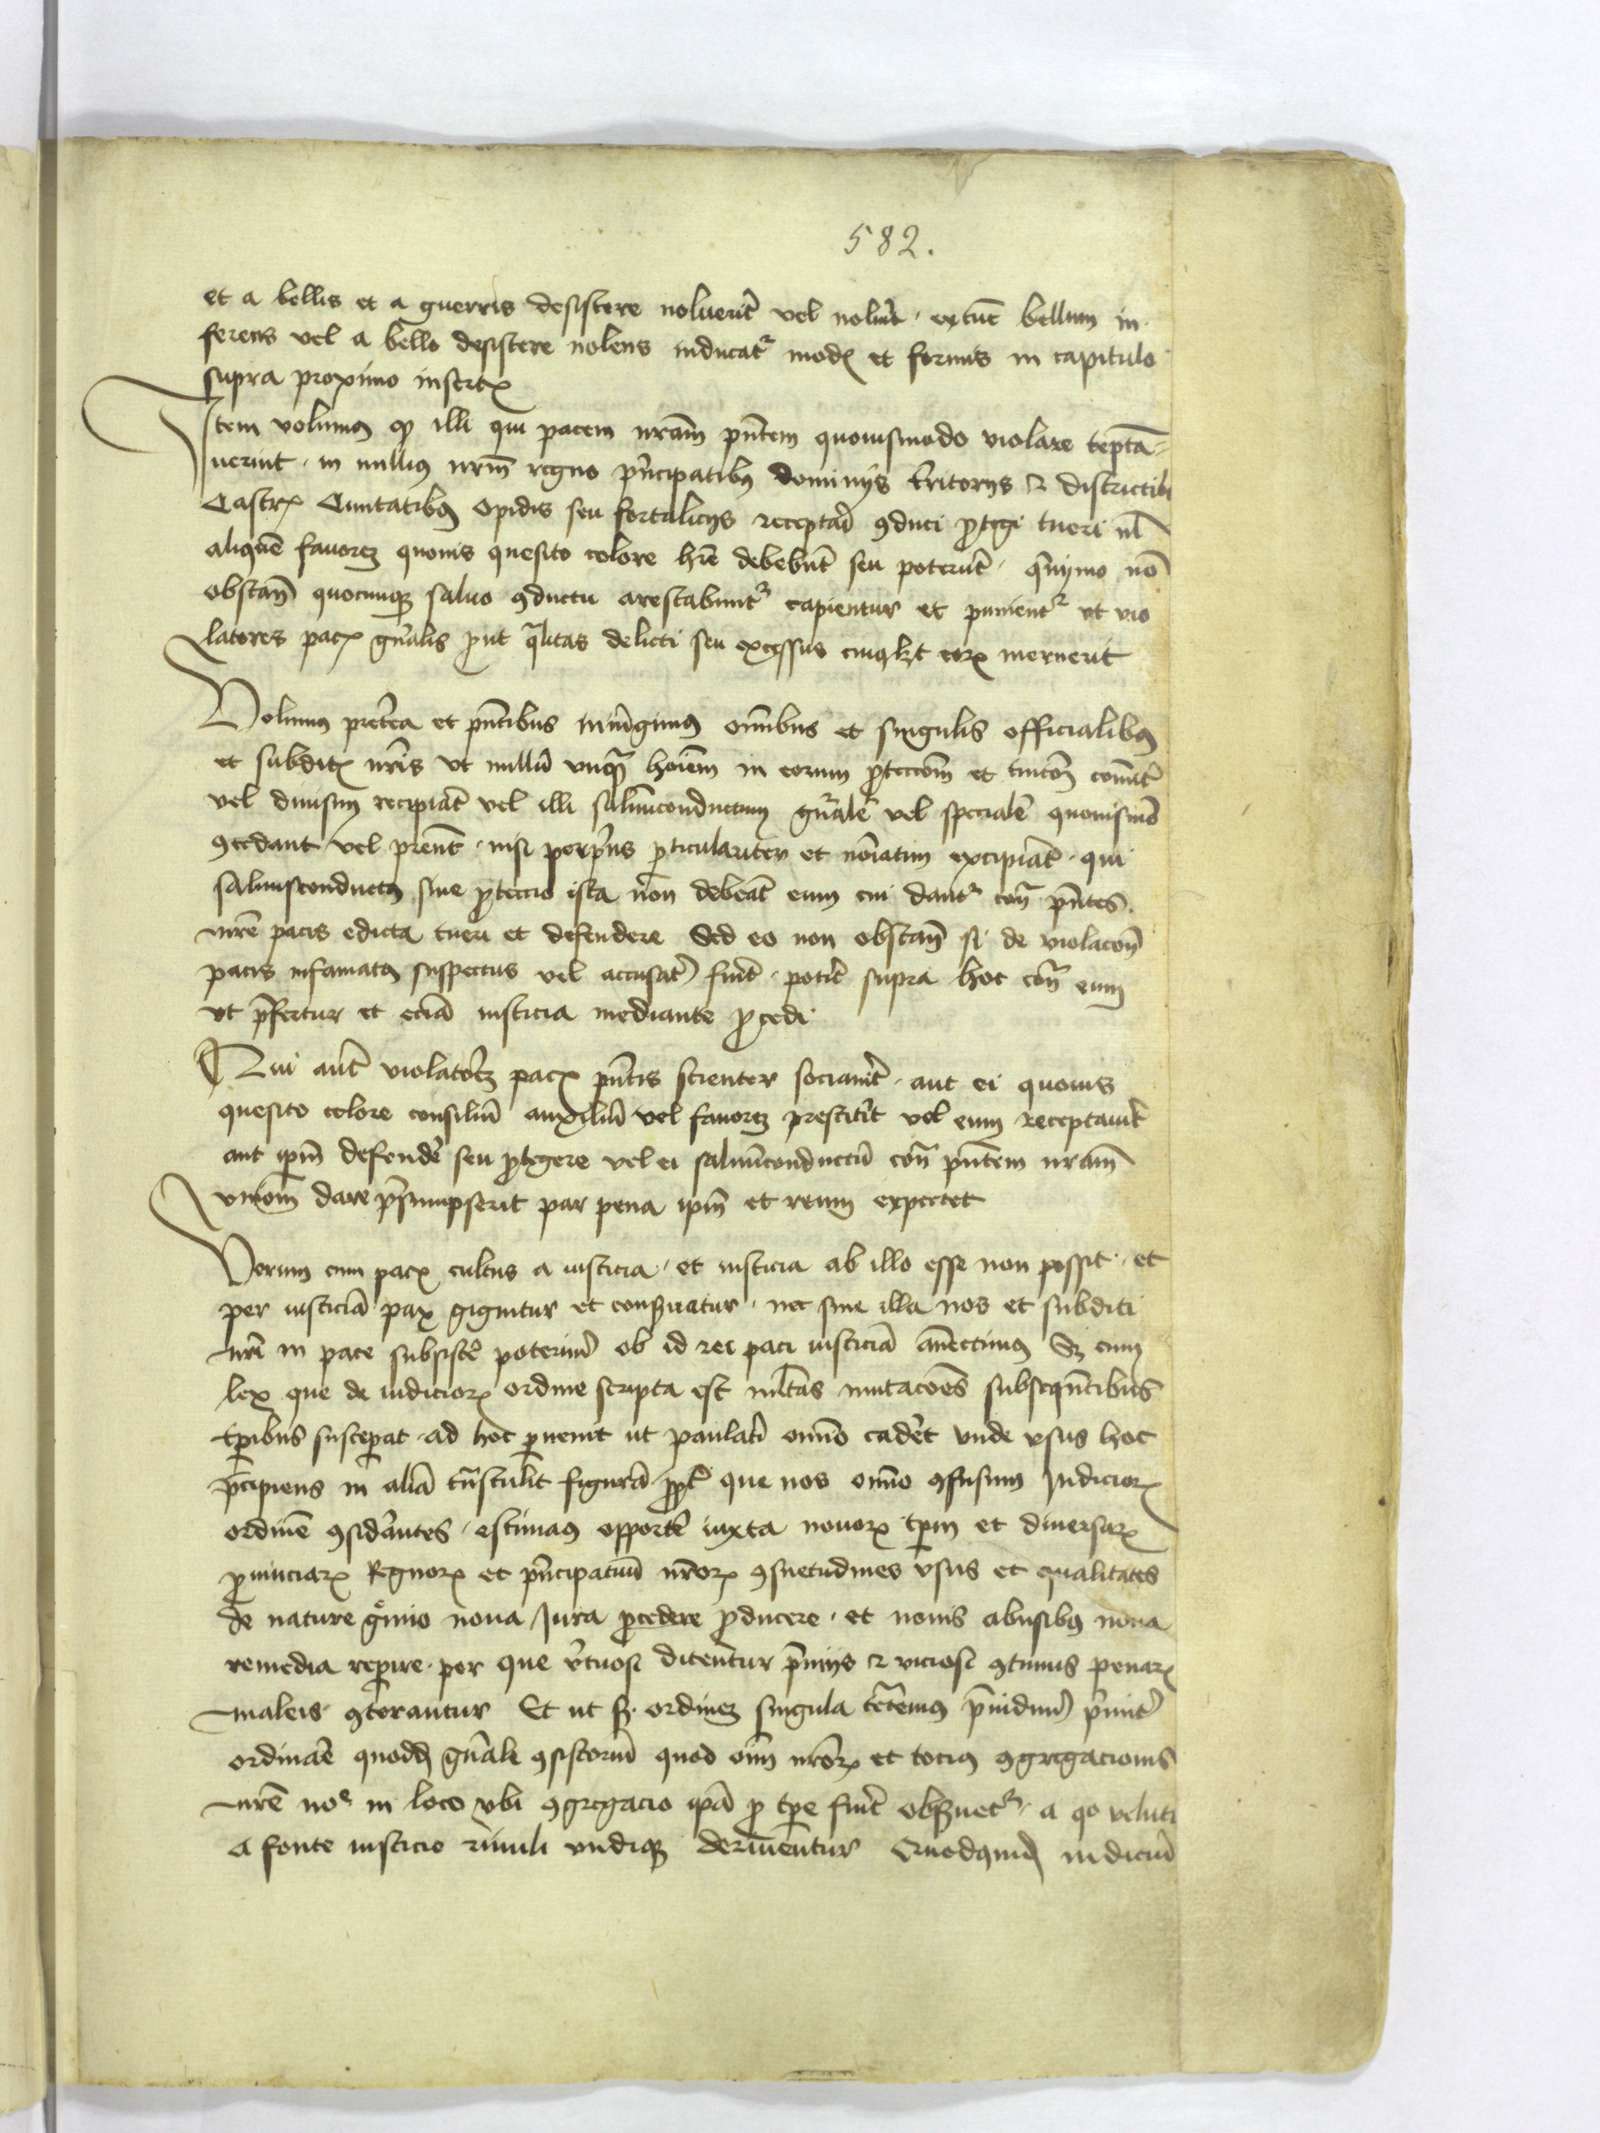 582.
et a bellis et a guerris desistere noluerit vel noluit extunc bellum in
ferens vel a bello desistere nolens inducatr modis et formis in capitulo
supra proximo insertis
Item volumus quod illi qui pacem nram pntem quouismodo violare tepta
uerint in nullius nrm regno pncipatibus dominijs territorijs et districtibus
Castris Ciuitatibus opidis seu fortalicijs receptari conduci protegi tueri vel
aliquem fauorem quouis quesito colore hre debebunt seu poterunt quinymo non
obstante quocumque saluo conductu arestabuntr capientur et punientr vt vio
latores pacis gnralis prout qualitas delicti seu excessus cuiuslibet eorum meruerit
Volumus preterea et pntibus iniungimus omnibus et singulis officialibus
et subditis nris vt nullum vnquam hoiem in eorum proteccom et tuicom comunit
vel diuisim recipiant vel illi saluumconductum gnralem vel specialem quouismodo
concedant vel prent nisi perprius particulariter et noiatim excipiat qui
saluusconductus siue proteccio ista non debeat eum cui dantr contra pntes
nre pacis edicta tueri et defendere Sed eo non obstante si de violacone
pacis infamatus suspectus vel accusatus fuerit poterit supra hoc contra eum
vt prefertur et eciam iusticia mediante procedi
Qui aut violatorem pacis pntis scienter sociauerit aut ei quouis
quesito colore consilium auxilium vel fauorem prestiterit vel eum receptauerit
aut ipm defendere seu protegere vel ei saluumconductum contra pntem nram
vniom dare presumpserit par pena ipm et reum expectet
Verum cum pacis cultus a iusticia et iusticia ab illo esse non possit et
per iusticiam pax gignitur et conseruatur nec sine illa nos et subditi
nri in pace subsistere poterimus ob id rei paci iusticiam annectimus Sed cum
lex que de iudiciorum ordine scripta est multas mutacoes subsequentibus
tpribus susceperat ad hoc peruenit ut paulatim omnino caderet vnde vsus hoc
percipiens in aliam transtulit figuram propter que nos omnino confusum Iudiciorum
ordinem considerantes estimamus opportere iuxta nouorum tpm et diuersarum
prouinciarum Regnorum et pncipatuum nrorum consuetudines vsus et qualitates
de nature gremio noua Iura procedere producere et nouis abusibus noua
remedia reperire per que virtuosi ditentur premijs et viciosi continuis penarum
maleis conterantur Et ut secundum ordinem singula tractemus preuidimus primitus
ordinare quoddam gnrale consistorium quod oim nrorum et tocius congregacionis
nre noe in loco vbi congregacio ipa pro tpe fuerit obseruetr a quo veluti
a fonte iusticie riuuli vndique deriuentur Quodquidem iudicium